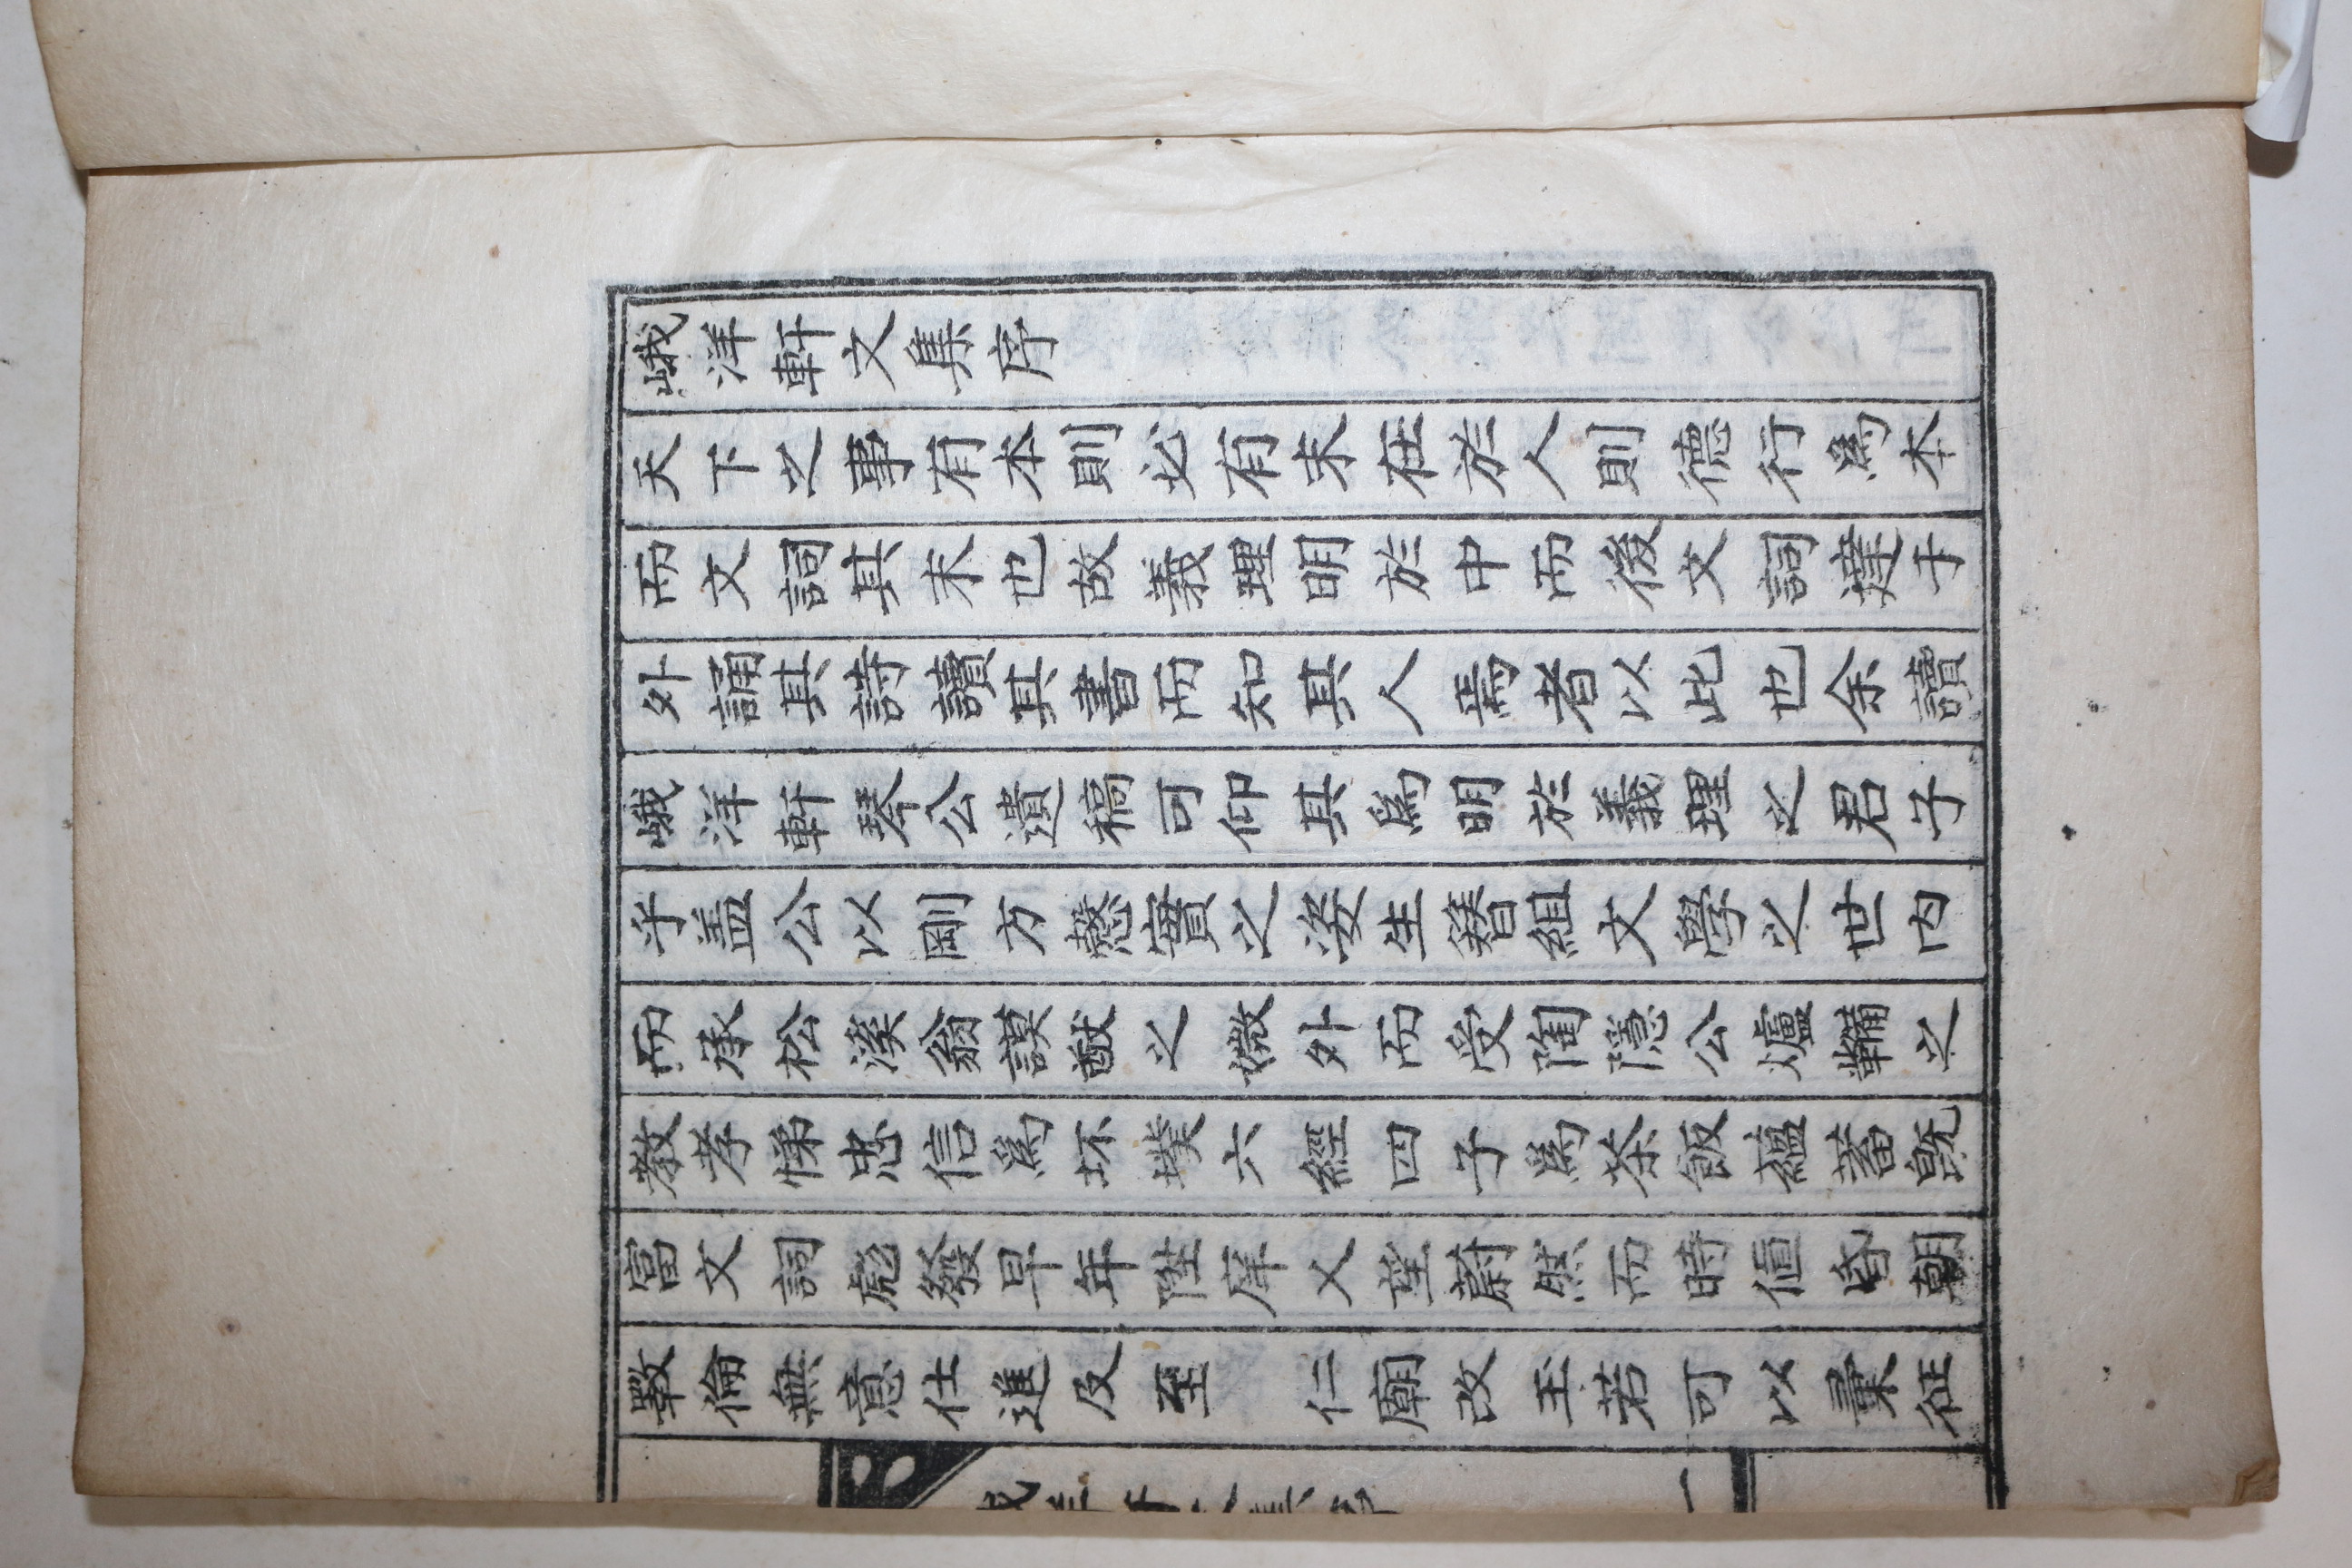 峨洋軒文集序
天下之事有本則必有末在於人則德行爲本
而文詞其末也故義理明於中而後文詞達于
外誦其詩讀其書而知其人焉者以此也余讀
峨洋軒琴公遺稿可仰其爲明於義理之君子
乎盖公以剛方慤實之姿生簪組文學之世內
而承松溪翁謨猷之媺外而受陶隱公爐鞴之
教孝悌忠信爲坏墣六經四子爲茶飯蘊蓄旣
富文詞彪發早年陞庠乂望蔚然而時値昏朝
斁倫無意仕進及至 仁廟改玉若可以彙征